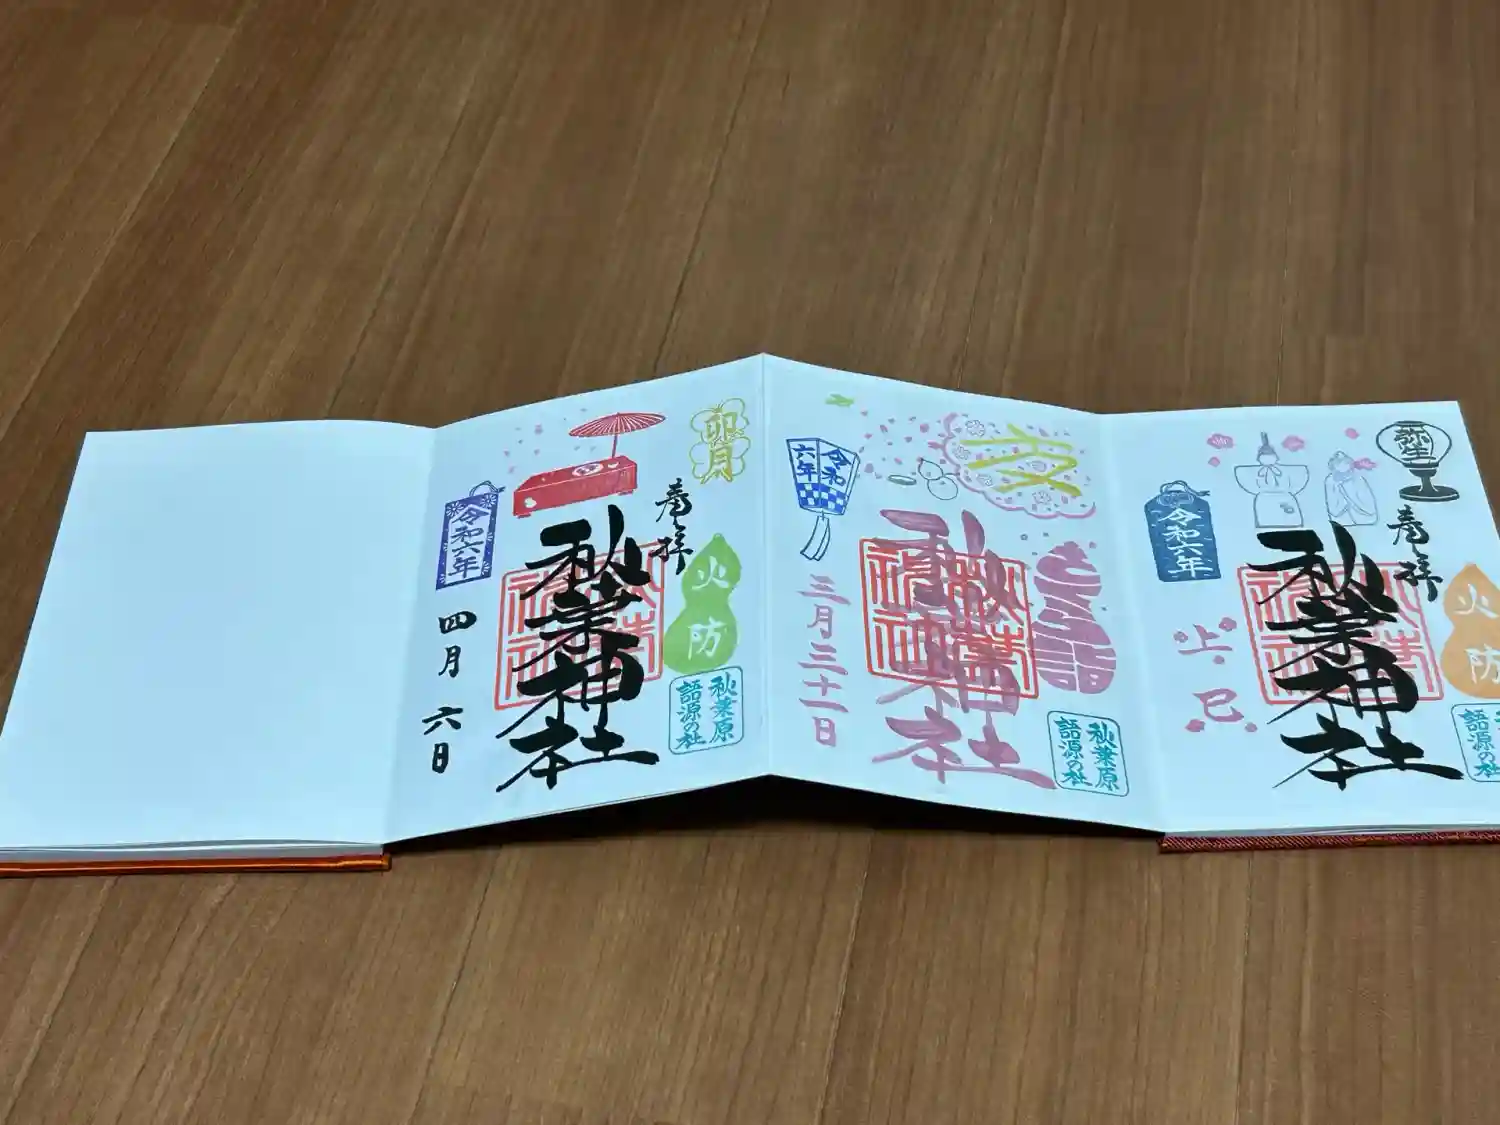 弥生
奉拝
火防
秋葉神社
令和六年
上巳
語源の社
夜
秋葉神社
令和六年
三月三十一日
秋葉原
語源の社
卯月
奉拝
火防
秋葉原
語源の社
秋葉神社
令和六年
四月六日